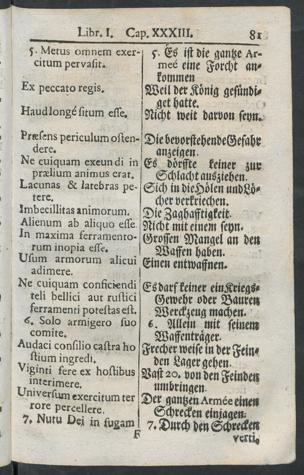 Libr. I. Cap. XXXIII. 81
5. Metus omnem exer-
citum pervasit.
Ex peccato regis.
Haud longè situm esse.
Præsens periculum osten-
dere.
Ne cuiquam exeundi in
prælium animus erat.
Lacunas & latebras pe-
tere.
Imbecillitas animorum.
Alienum ab aliquo esse.
In maxima ferramento-
rum inopia esse.
Usum armorum alicui
adimere.
Ne cuiquam conficiendi
teli bellici aut rustici
ferramenti potestas est.
6. Solo armigero suo
comite.
Audaci consilio castra ho
stium ingredi.
Viginti fere ex hostibus
interimere.
Universum exercitum ter
rore percellere.
7. Nutu Dei in fugam
F
5. Es ist die gantze Ar-
meé eine Forcht an-
kommen
Weil der König gesündi-
get hatte.
Nicht weit darvon seyn.
Die bevorstehende Gefahr
anzeigen.
Es dörffte keiner zur
Schlacht ausziehen.
Sich in die Hölen und Lö-
cher verkriechen.
Die Zaghafftigkeit.
Nicht mit einem seyn.
Grossen Mangel an den
Waffen haben.
Einen entwaffnen.
Es darf keiner ein Kriegs-
Gewehr oder Bauren
Werckzeug machen.
6. Allein mit seinem
Waffenträger.
Frecher weise in der Fein-
den Lager gehen.
Vast 20. von den Feinden
umbringen.
Der gantzen Armée einen
Schrecken einjagen.
7. Durch den Schrecken